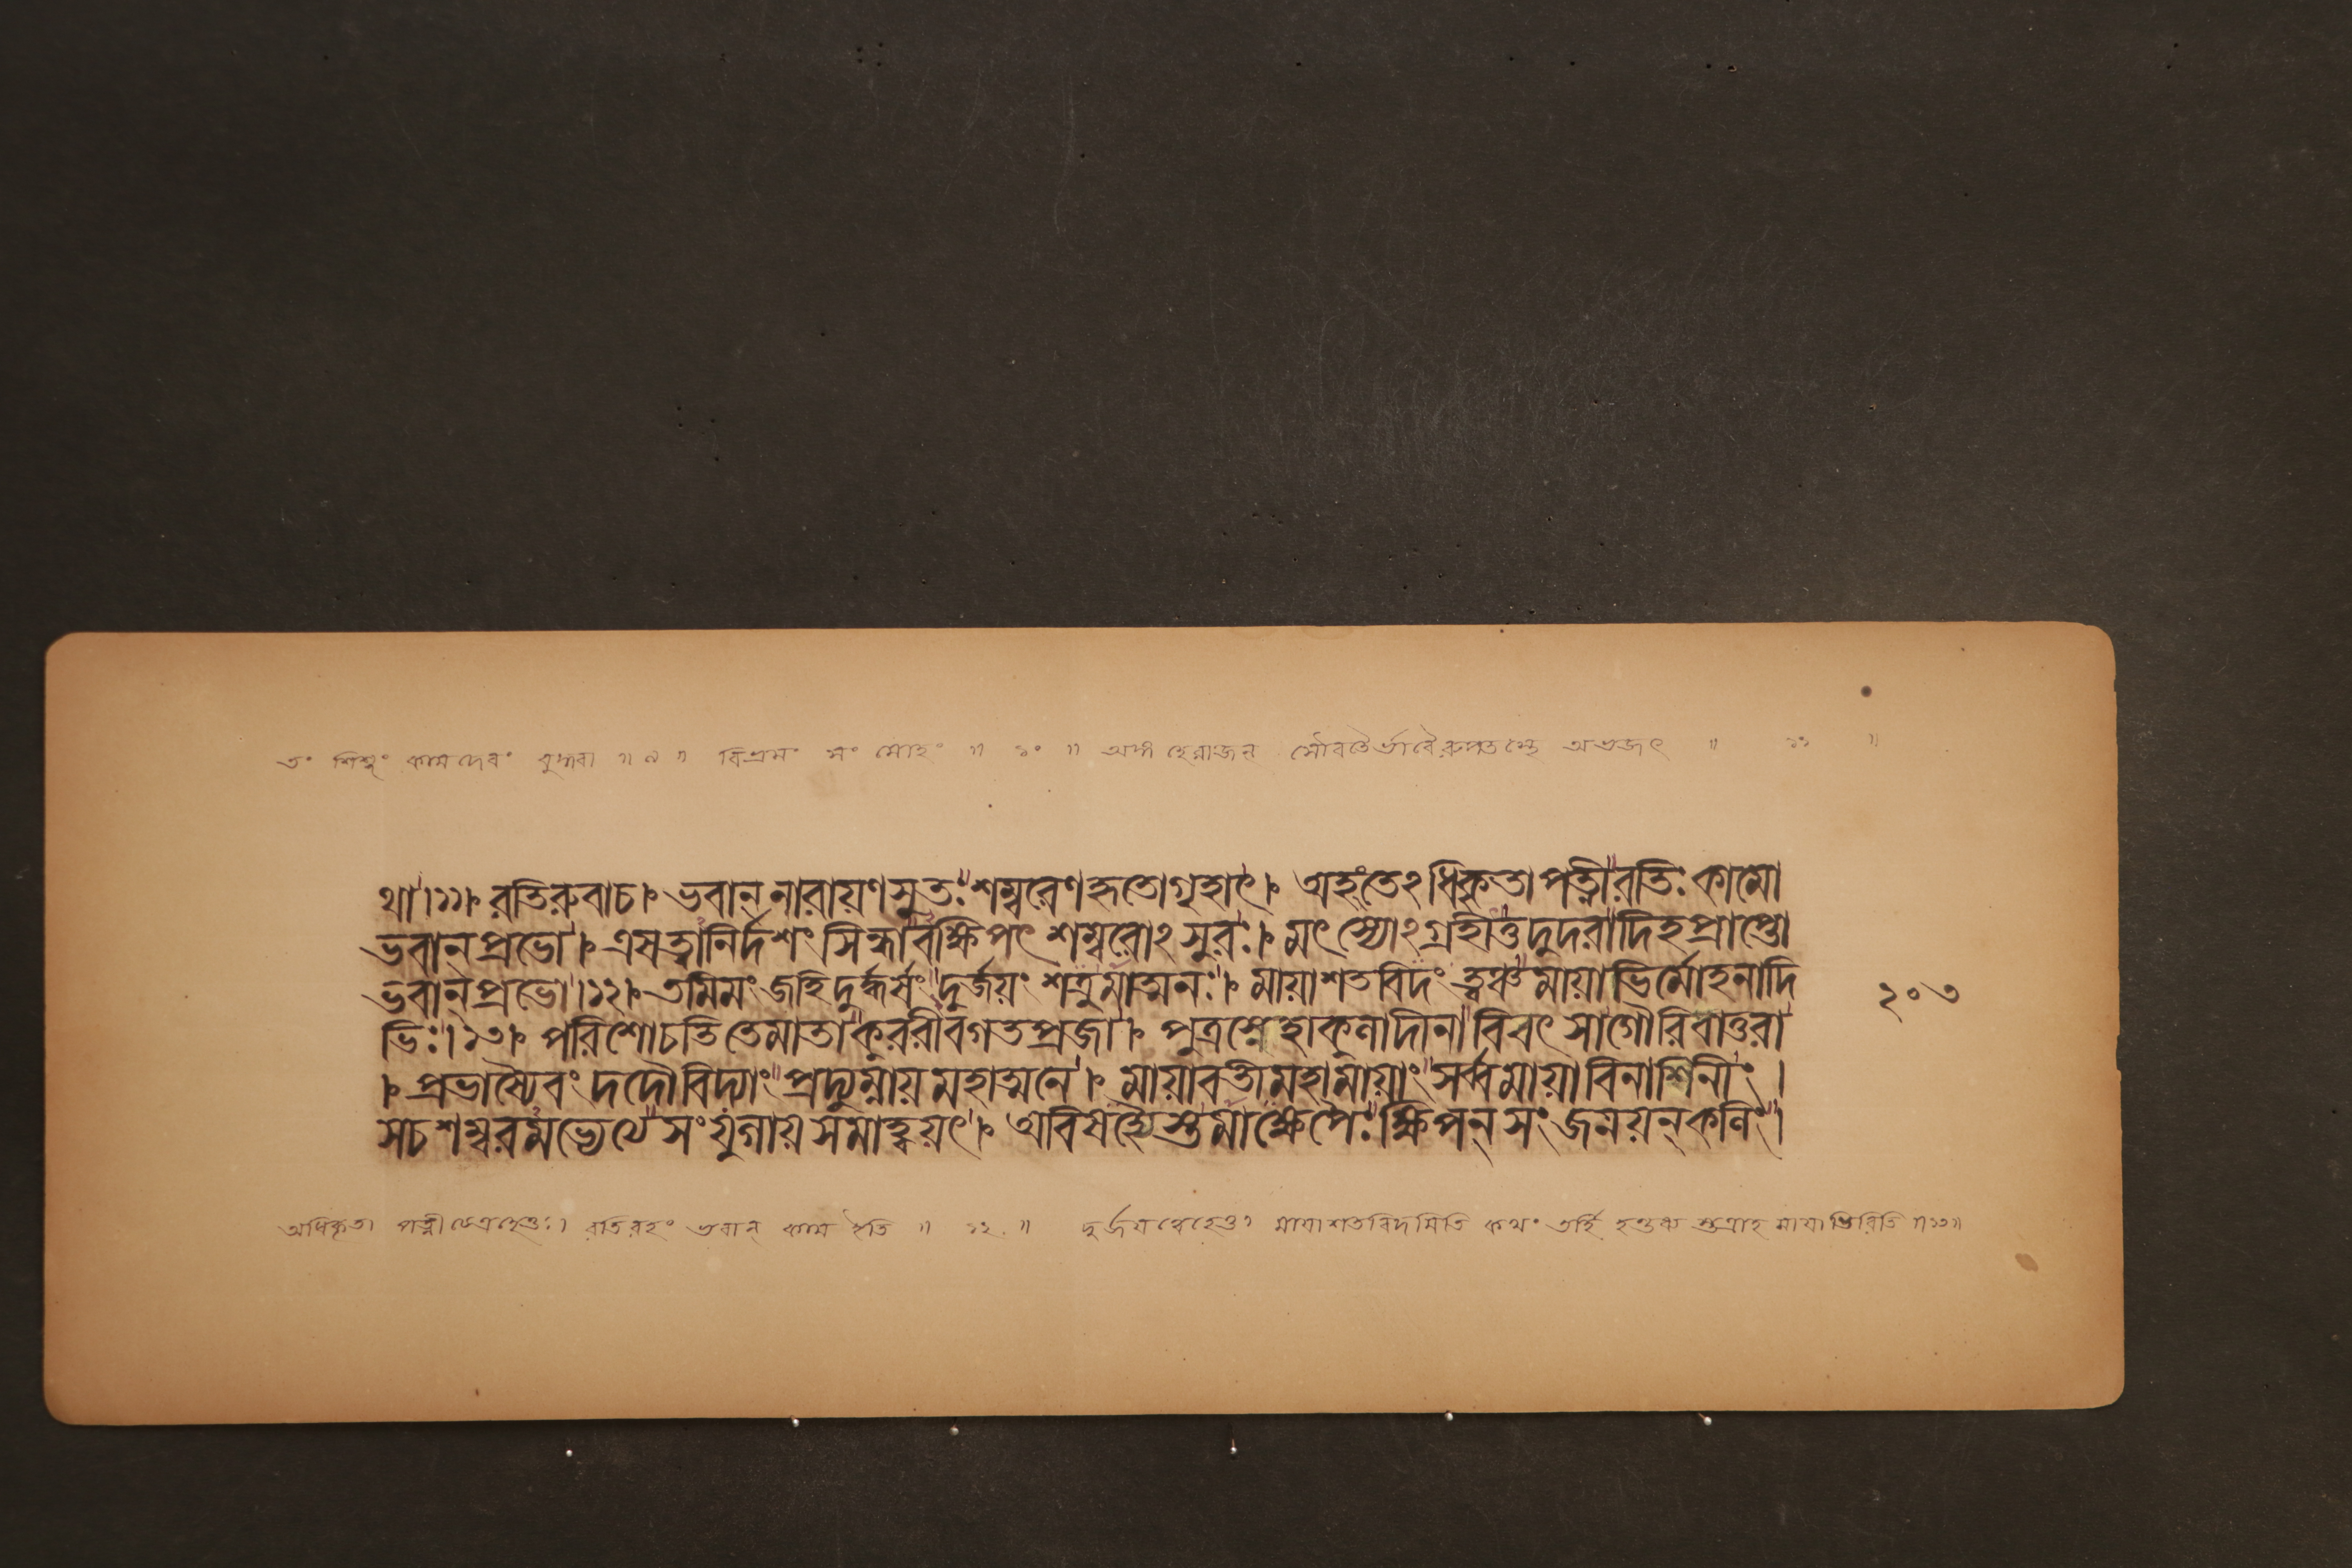 তং শিশুং কামদেবং বুদ্ধ্বা ॥ ৯ ॥ বিভ্রমং সংমোহং ॥ ১০ ॥ অথ হেরাজন্ সৌরতৈর্ভাবৈরুপতস্থে অভজৎ ॥ ১১ ॥
থা।১১। রতিরুবাচ। ভবান্ নারায়ণসুতঃ শম্বরেণহৃতোগৃহাৎ। অহংতেঽধিকৃতাপত্নীরতিঃ কামো
ভবান্প্রভো। এষত্বানির্দশং সিন্ধাবক্ষিপৎ শম্বরোঽসুরঃ। মৎস্যোঽগ্রহীত্তদুদরাদিহপ্রাপ্তো
ভবান্প্রভো।১২। তমিমং জহিদুর্দ্ধর্ষং দুর্জয়ং শত্রুমাত্মনঃ। মায়াশতবিদং ত্বঞ্চমায়াভির্মোহনাদি
ভিঃ।১৩। পরিশোচতিতেমাতাকুররীবগতপ্রজা। পুত্রস্নেহাকুলাদীনাবিবৎ সাগৌরিবাতুরা
। প্রভাষ্যৈবং দদৌবিদ্যাং প্রদ্যুম্নায়মহাত্মনে। মায়াবতীমহামায়াং সর্ব্বমায়াবিনাশিনীং।
সচশম্বরমভ্যেত্য সংযুগায়সমাহ্বয়ৎ। অবিষহ্যৈস্তমাক্ষেপৈঃ ক্ষিপন্ সংজনয়ন্কলিং।
২০৩
অধিকৃতা পত্নী রতিরহং ভবান্ কাম ইতি ॥ ১২ ॥ দুর্জয়ত্বেহেতুঃ মায়াশতবিদমিতি কথং তর্হি হন্তব্য স্তত্রাহ মায়াভিরিতি ॥১৩॥